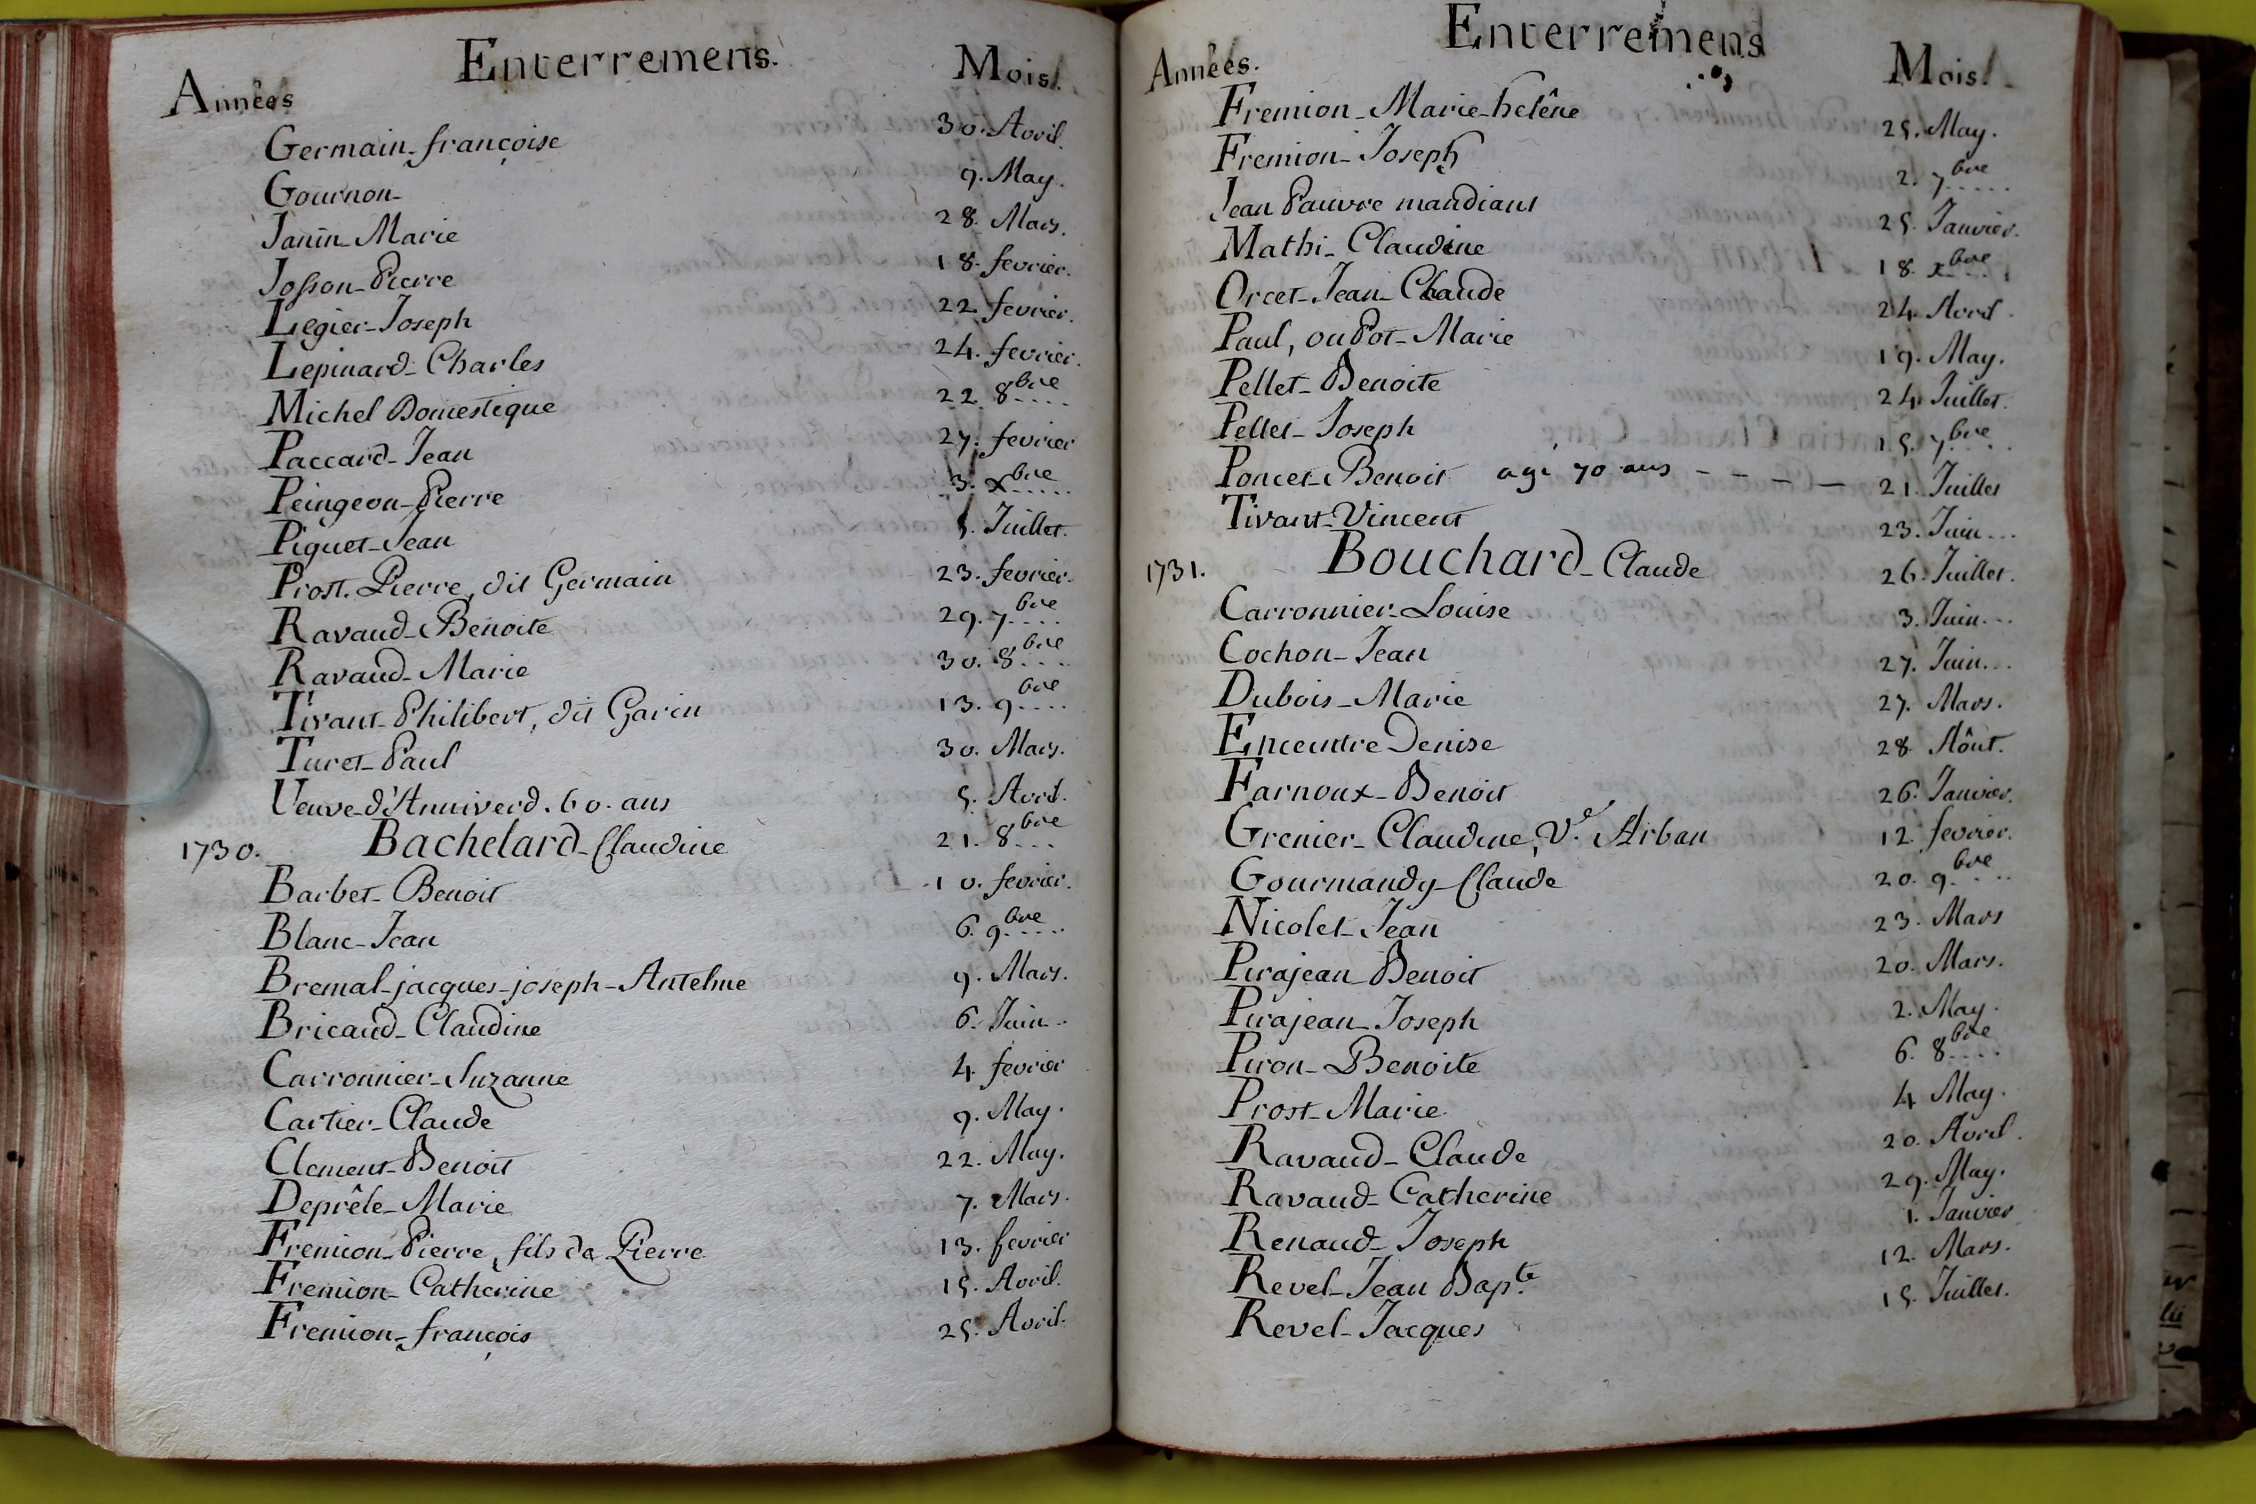 Enterremens.
Années Mois.
Germain-françoise 30. Avril.
Gournon- 9. May.
Janin-Marie 28. Mars.
Josson-Pierre 18. fevrier.
Legier-Joseph 22 fevrier.
Lepinard-Charles 24. fevrier.
Michel Domestique 22. 8bre....
Paccard-Jean 27. fevrier
Peingeon-Pierre 3. xbre.....
Piquet-Jean 5. Juillet.
Prost. Pierre, dit Germain 23. fevrier.
Ravaud-Benoite 29. 7bre....
Ravaud-Marie 30. 8bre....
Tivant-Philibert, dit Garin 13. 9bre....
Turet-Paul 30. Mars.
Veuve-d'Anniverd. 60. ans 5. Avril.
1730. Bachelard-Claudine 21. 8bre...
Barbet-Benoit 10. fevrier.
Blanc-Jean 6. 9bre.....
Bremal-jacques-joseph-Antelme 9. Mars.
Bricaud-Claudine 6. Juin..
Carronnier-Suzanne 4. fevrier
Cartier-Claude 9. May.
Clement-Benoit 22. May.
Deprêle-Marie 7. Mars.
Fremion-Pierre, fils de Pierre 13. fevrier
Fremion-Catherine 15. Avril.
Fremion-françois 25. Avril.
Enterremens
Années. Mois.
Fremion-Marie-helêne 25. May.
Fremion-Joseph 2. 7bre.....
Jean Pauvre mandiant 25. Janvier.
Mathi-Claudine 18. xbre....
Orcet-Jean-Claude 24. Avril.
Paul, ou Pot-Marie 19. May.
Pellet-Benoite 24. Juillet.
Pellet-Joseph 15. 7bre....
Poncet-Benoit agé 70 ans - - - - 21. Juillet
Tivant-Vincent 23. Juin...
1731. Bouchard-Claude 26. Juillet.
Carronnier-Louise 3. Juin...
Cochon-Jean 27. Juin...
Dubois-Marie 27. Mars.
Epcentre Denise 28. Aôut.
Farnoux-Benoit 26. Janvier.
Grenier-Claudine, Ve. Arban 12. fevrier.
Gourmandy-Claude 20. 9bre...
Nicolet-Jean 23. Mars
Pirajean-Benoit 20. Mars.
Pirajean-Joseph 2. May.
Piron-Benoite 6. 8bre....
Prost-Marie 4 May.
Ravaud-Claude 20. Avril.
Ravaud-Catherine 29. May.
Renaud-Joseph 1. Janvier
Revel-Jean Bapte. 12. Mars.
Revel-Jacques 15. Juillet.